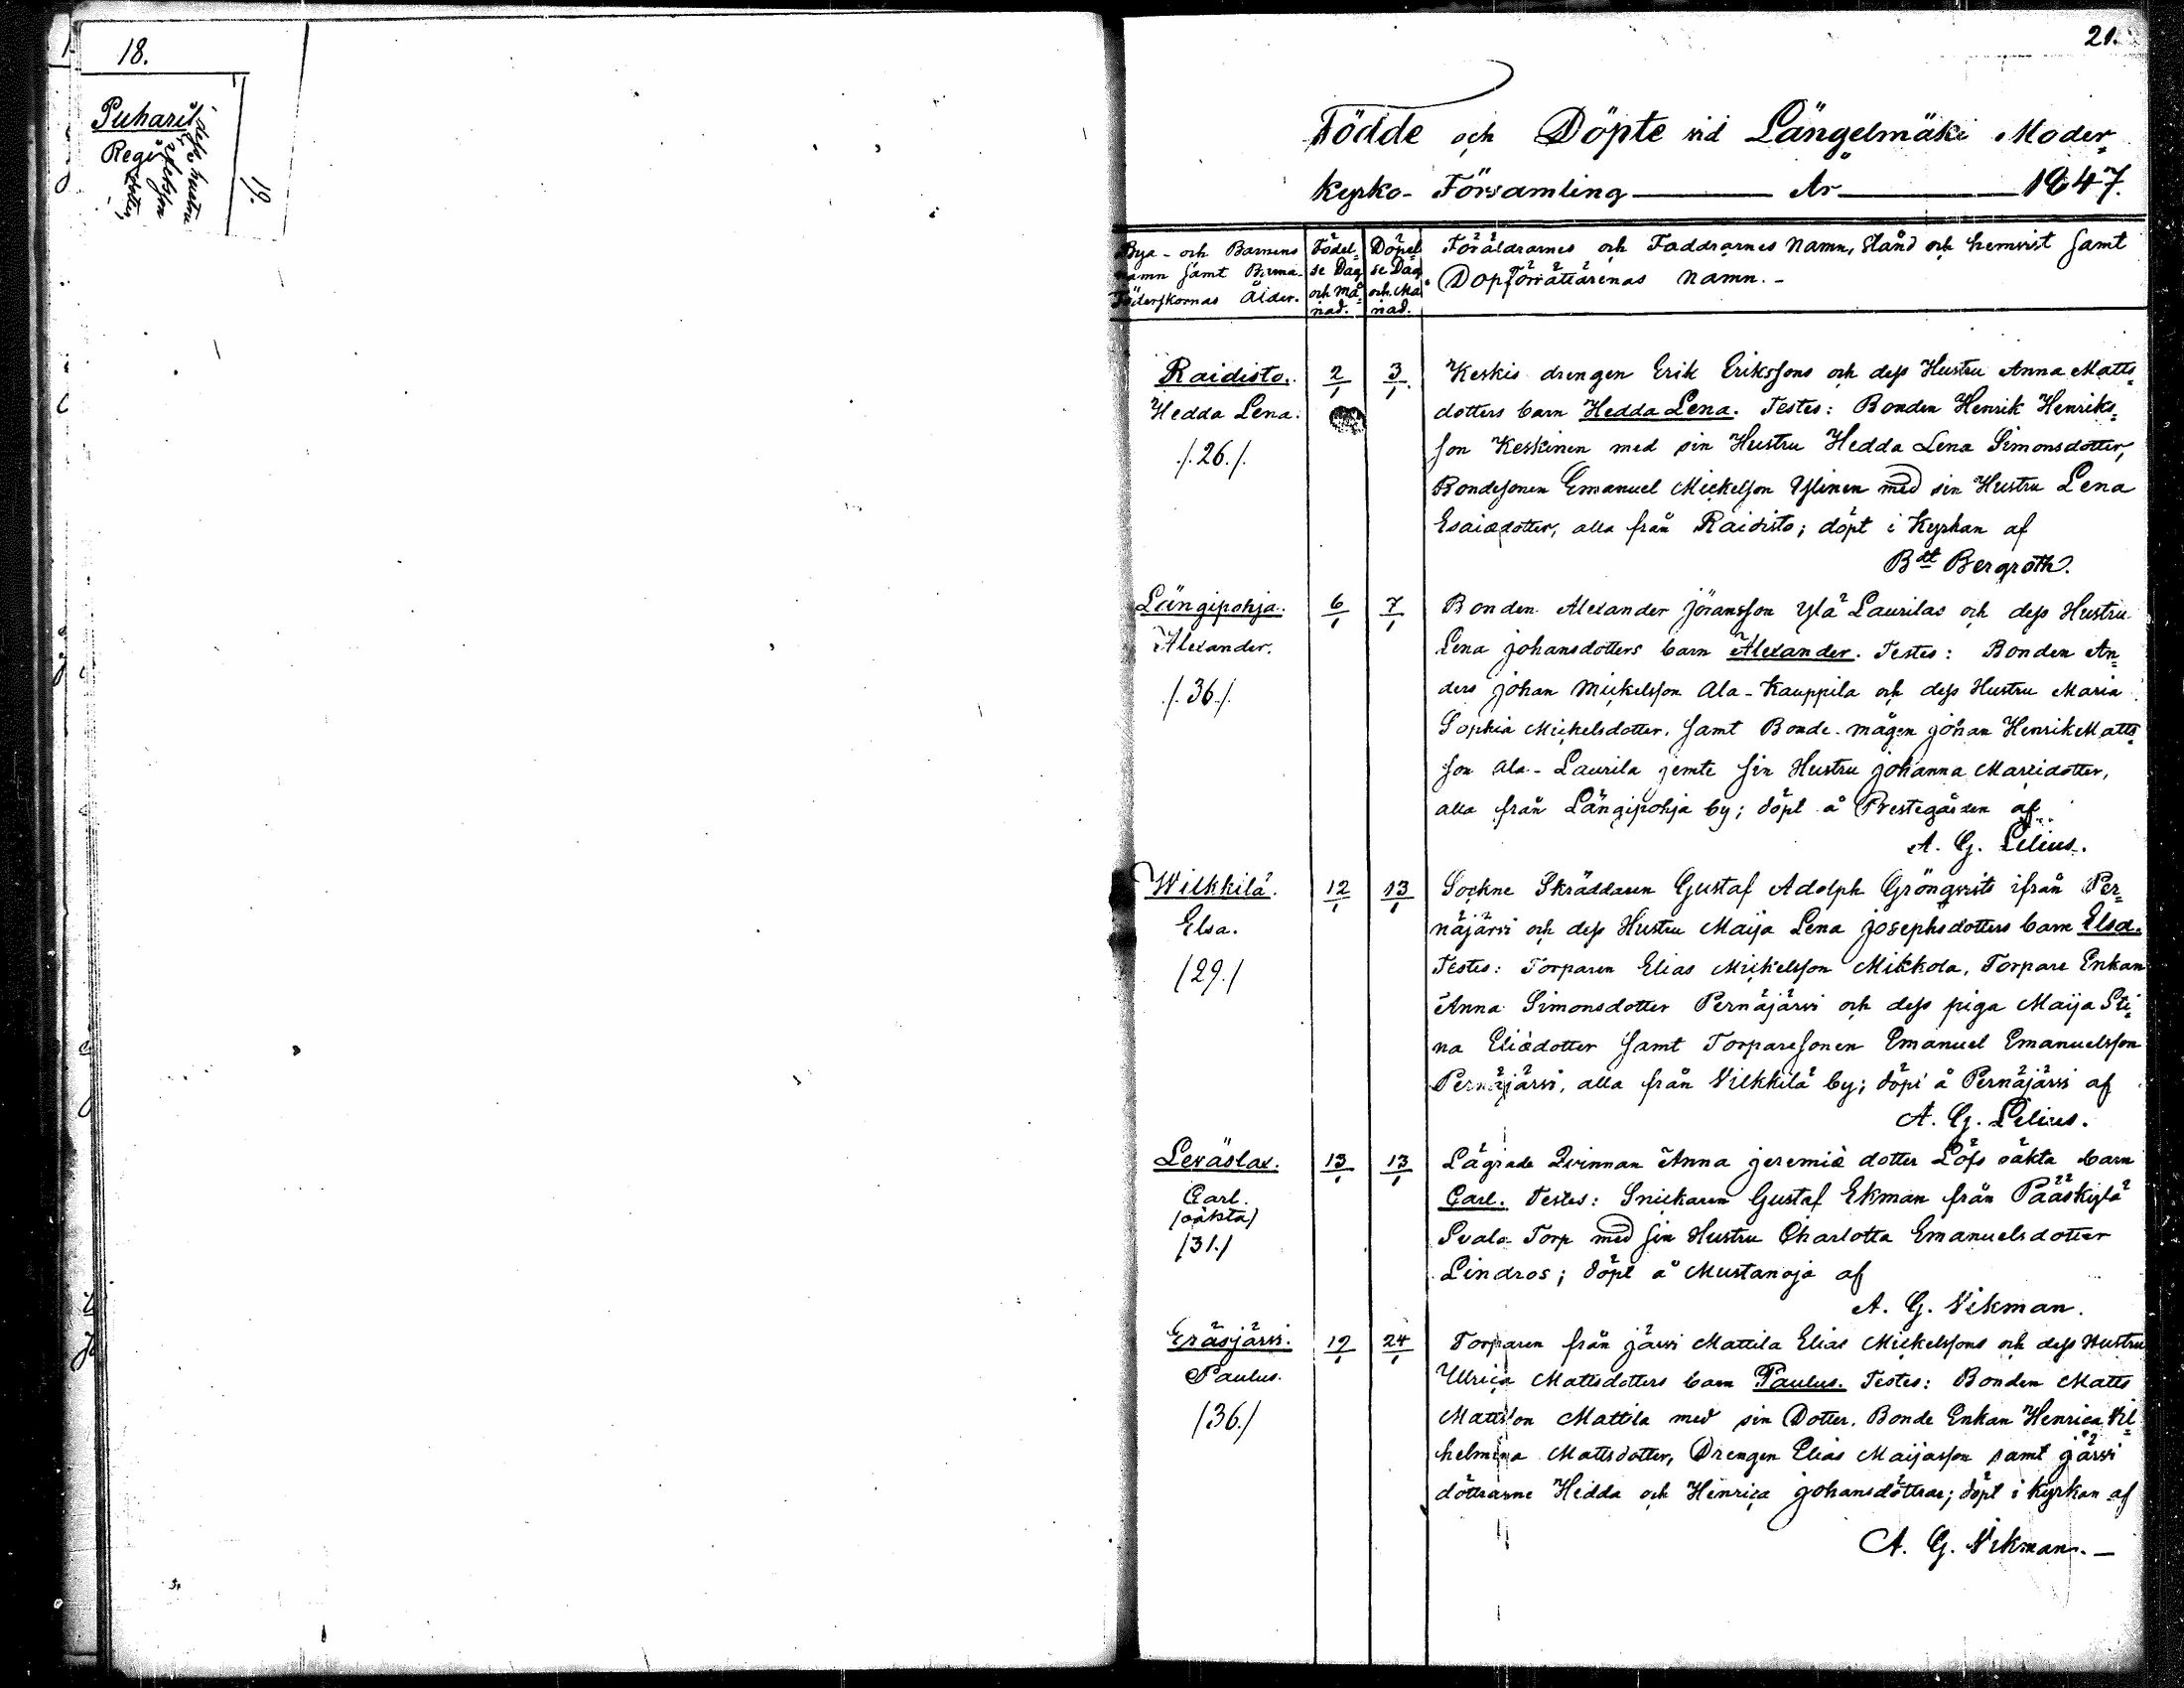 18.
Puharil
Regi
19.
21.
Födde och Döpte vid Längelmäki Moder=
kyrko-Församling År 1847.
Bya- och Barnens namn samt Barna-Föderskornas Ålder.
Födel=se Dag och Månad.
Döpel=se Dag och Månad.
Föräldrarnes och Faddrarnes Namn, Stånd och hemvist samt
Dopförrättarenas Namn.-
Raidisto. 2/1 3/1. Keskis drengen Erik Erikssons och dess Hustru Anna Matts=
Hedda Lena. dotters barn Hedda Lena. Testes: Bonden Henrik Henriks=
/.26./. son Keskinen med sin Hustru Hedda Lena Simonsdotter,
Bondesonen Emanuel Mickelson Yslinen med sin Hustru Lena
Esaiædotter, alla från Raidisto; döpt i Kyrkan af
Bdt Bergroth.
Längipohja. 6/1 7/1 Bonden Alexander Jöransson Ylä Laurilas och dess Hustru
Alexander. Lena Johansdotters barn Alexander. Testes: Bonden An=
/.36./. ders Johan Mickelsson Ala-Kauppila och dess Hustru Maria
Sophia Mickelsdotter, samt Bonde-mågen Johan Henrik Matts=
son Ala-Laurila jemte sin Hustru Johanna Mariædotter,
alla från Längipohja by; döpt å Prestegården af
A. G. Lilius.
Wilkkilä. 12/1 13/1 Sockne Skräddaren Gustaf Adolph Gröngvists ifrån Per=
Elsa. näjärvi och dess Hustru Maija Lena Josephsdotters barn Elsa.
/29./ Testes: Torparen Elias Mickelsson Mikkola, Torpare Enkan
Anna Simonsdotter Pernäjärvi och dess piga Maija Sti=
na Eliædotter samt Torparesonen Emanuel Emanuelsson
Pernäjärvi, alla från Vilkkilä by; döpt å Pernäjärvi af
A. G. Lilius.
Leväslax. 13/1 13/1 Lägrade Qvinnan Anna Jeremiæ dotter Löfs oäkta barn
Carl. Carl. Testes: Snickaren Gustaf Ekman från Pääskylä
/oäkta/ Svals Torp med sin Hustru Charlotta Emanuelsdotter
/31./ Lindros; döpt å Mustanoja af
A. G. Vikman.
Eräsjärvi. 19/1 24/1 Torparen från Järvi Mattila Elias Mickelssons och dess Hustru
Paulus. Ulrica Mattsdotters barn Paulus. Testes: Bonden Matts
/36./ Mattsson Mattila med sin Dotter, Bonde Enkan Henrica Vil=
helmina Mattsdotter, Drengen Elias Maijasson samt Järvi
döttrarne Hedda och Henrica Johansdöttrar; döpt i Kyrkan af
A. G. Vikman.-